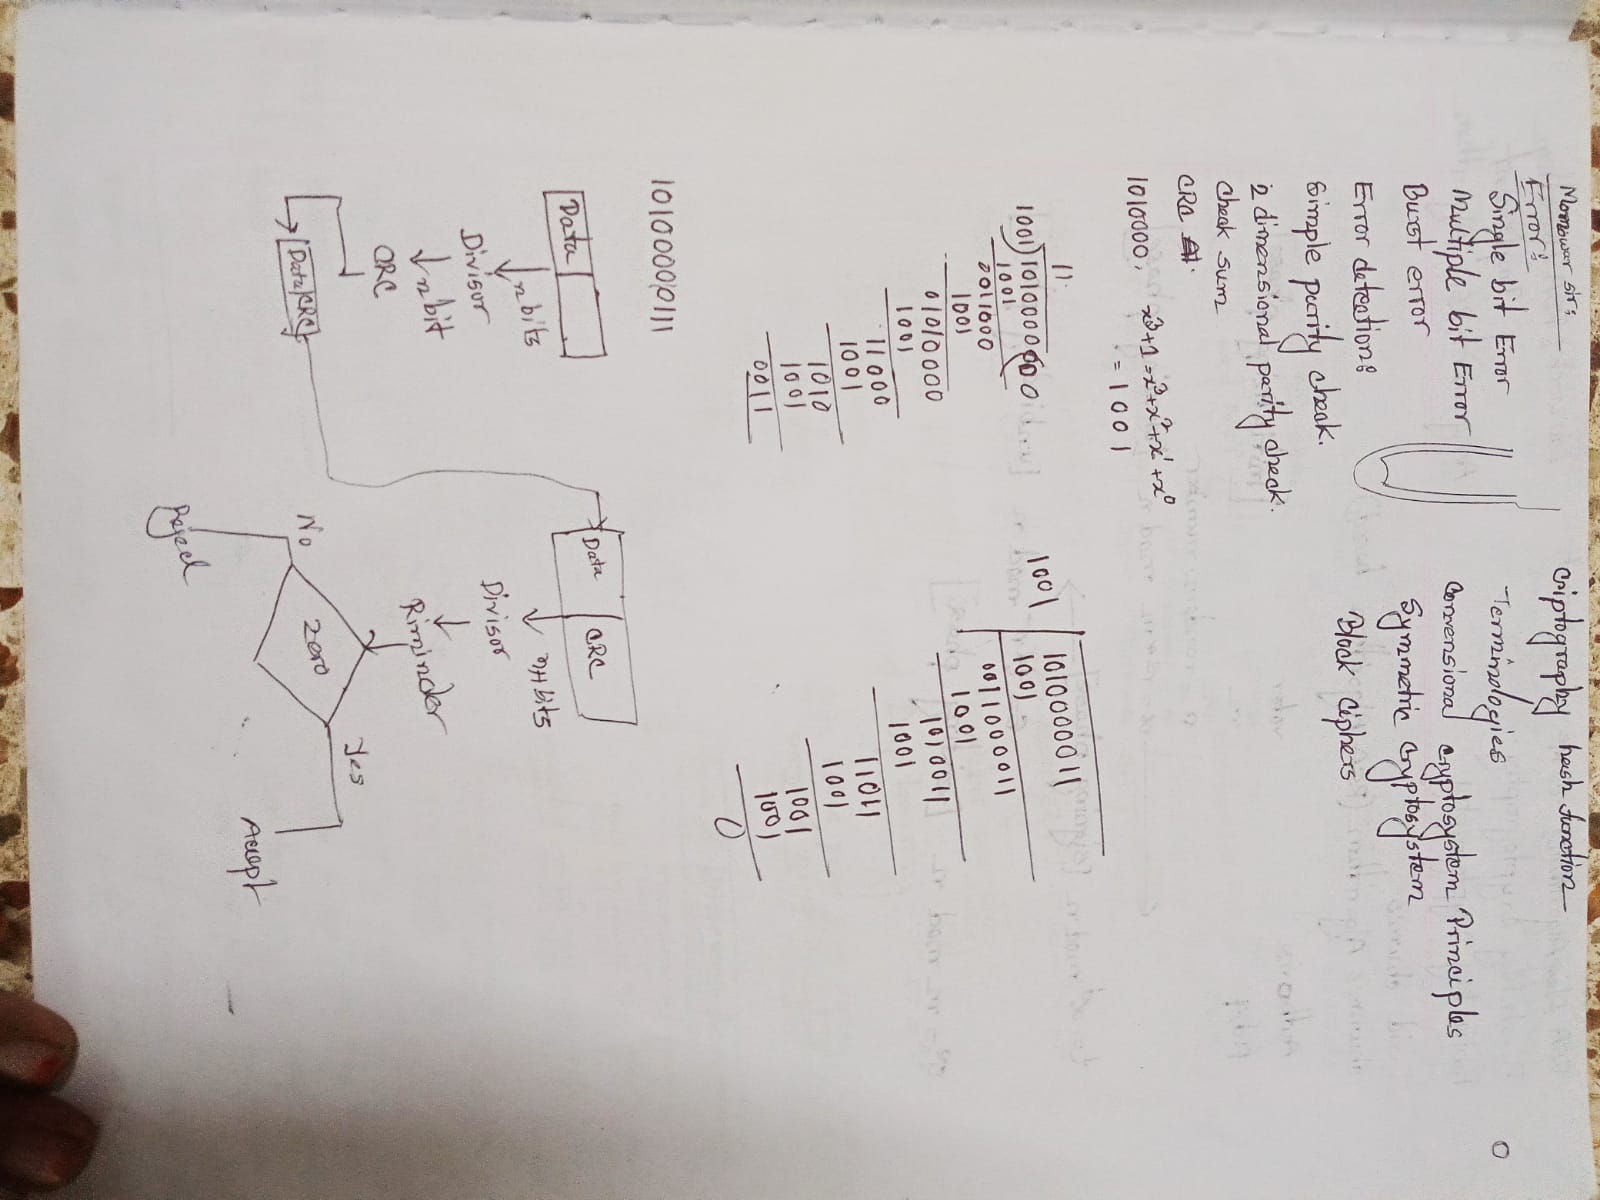 Monowar sir:
Error:
Single bit Error
Multiple bit Error
Burst error
Error detection:
Simple parity check.
2 dimensional parity check.
Check sum
CRC
1010000, x3+1 = x3+x2+x1+x0
= 1001
Criptography hash function
Terminologies
Convensional Cryptosystem Principles
Symmetric Cryptosystem
Block Ciphers
11
1001)1010000000
1001
0011000
1001
01010000
1001
11000
1001
1010
1001
0011
1001 1010000011
1001
0011000011
1001
1010011
1001
11011
1001
1001
1001
0
10100000111
Data
n bits
Divisor
n bit
CRC
Data/CRC
Data CRC
bits
Divisor
Riminder
Zero
No
Yes
Reject
Accept